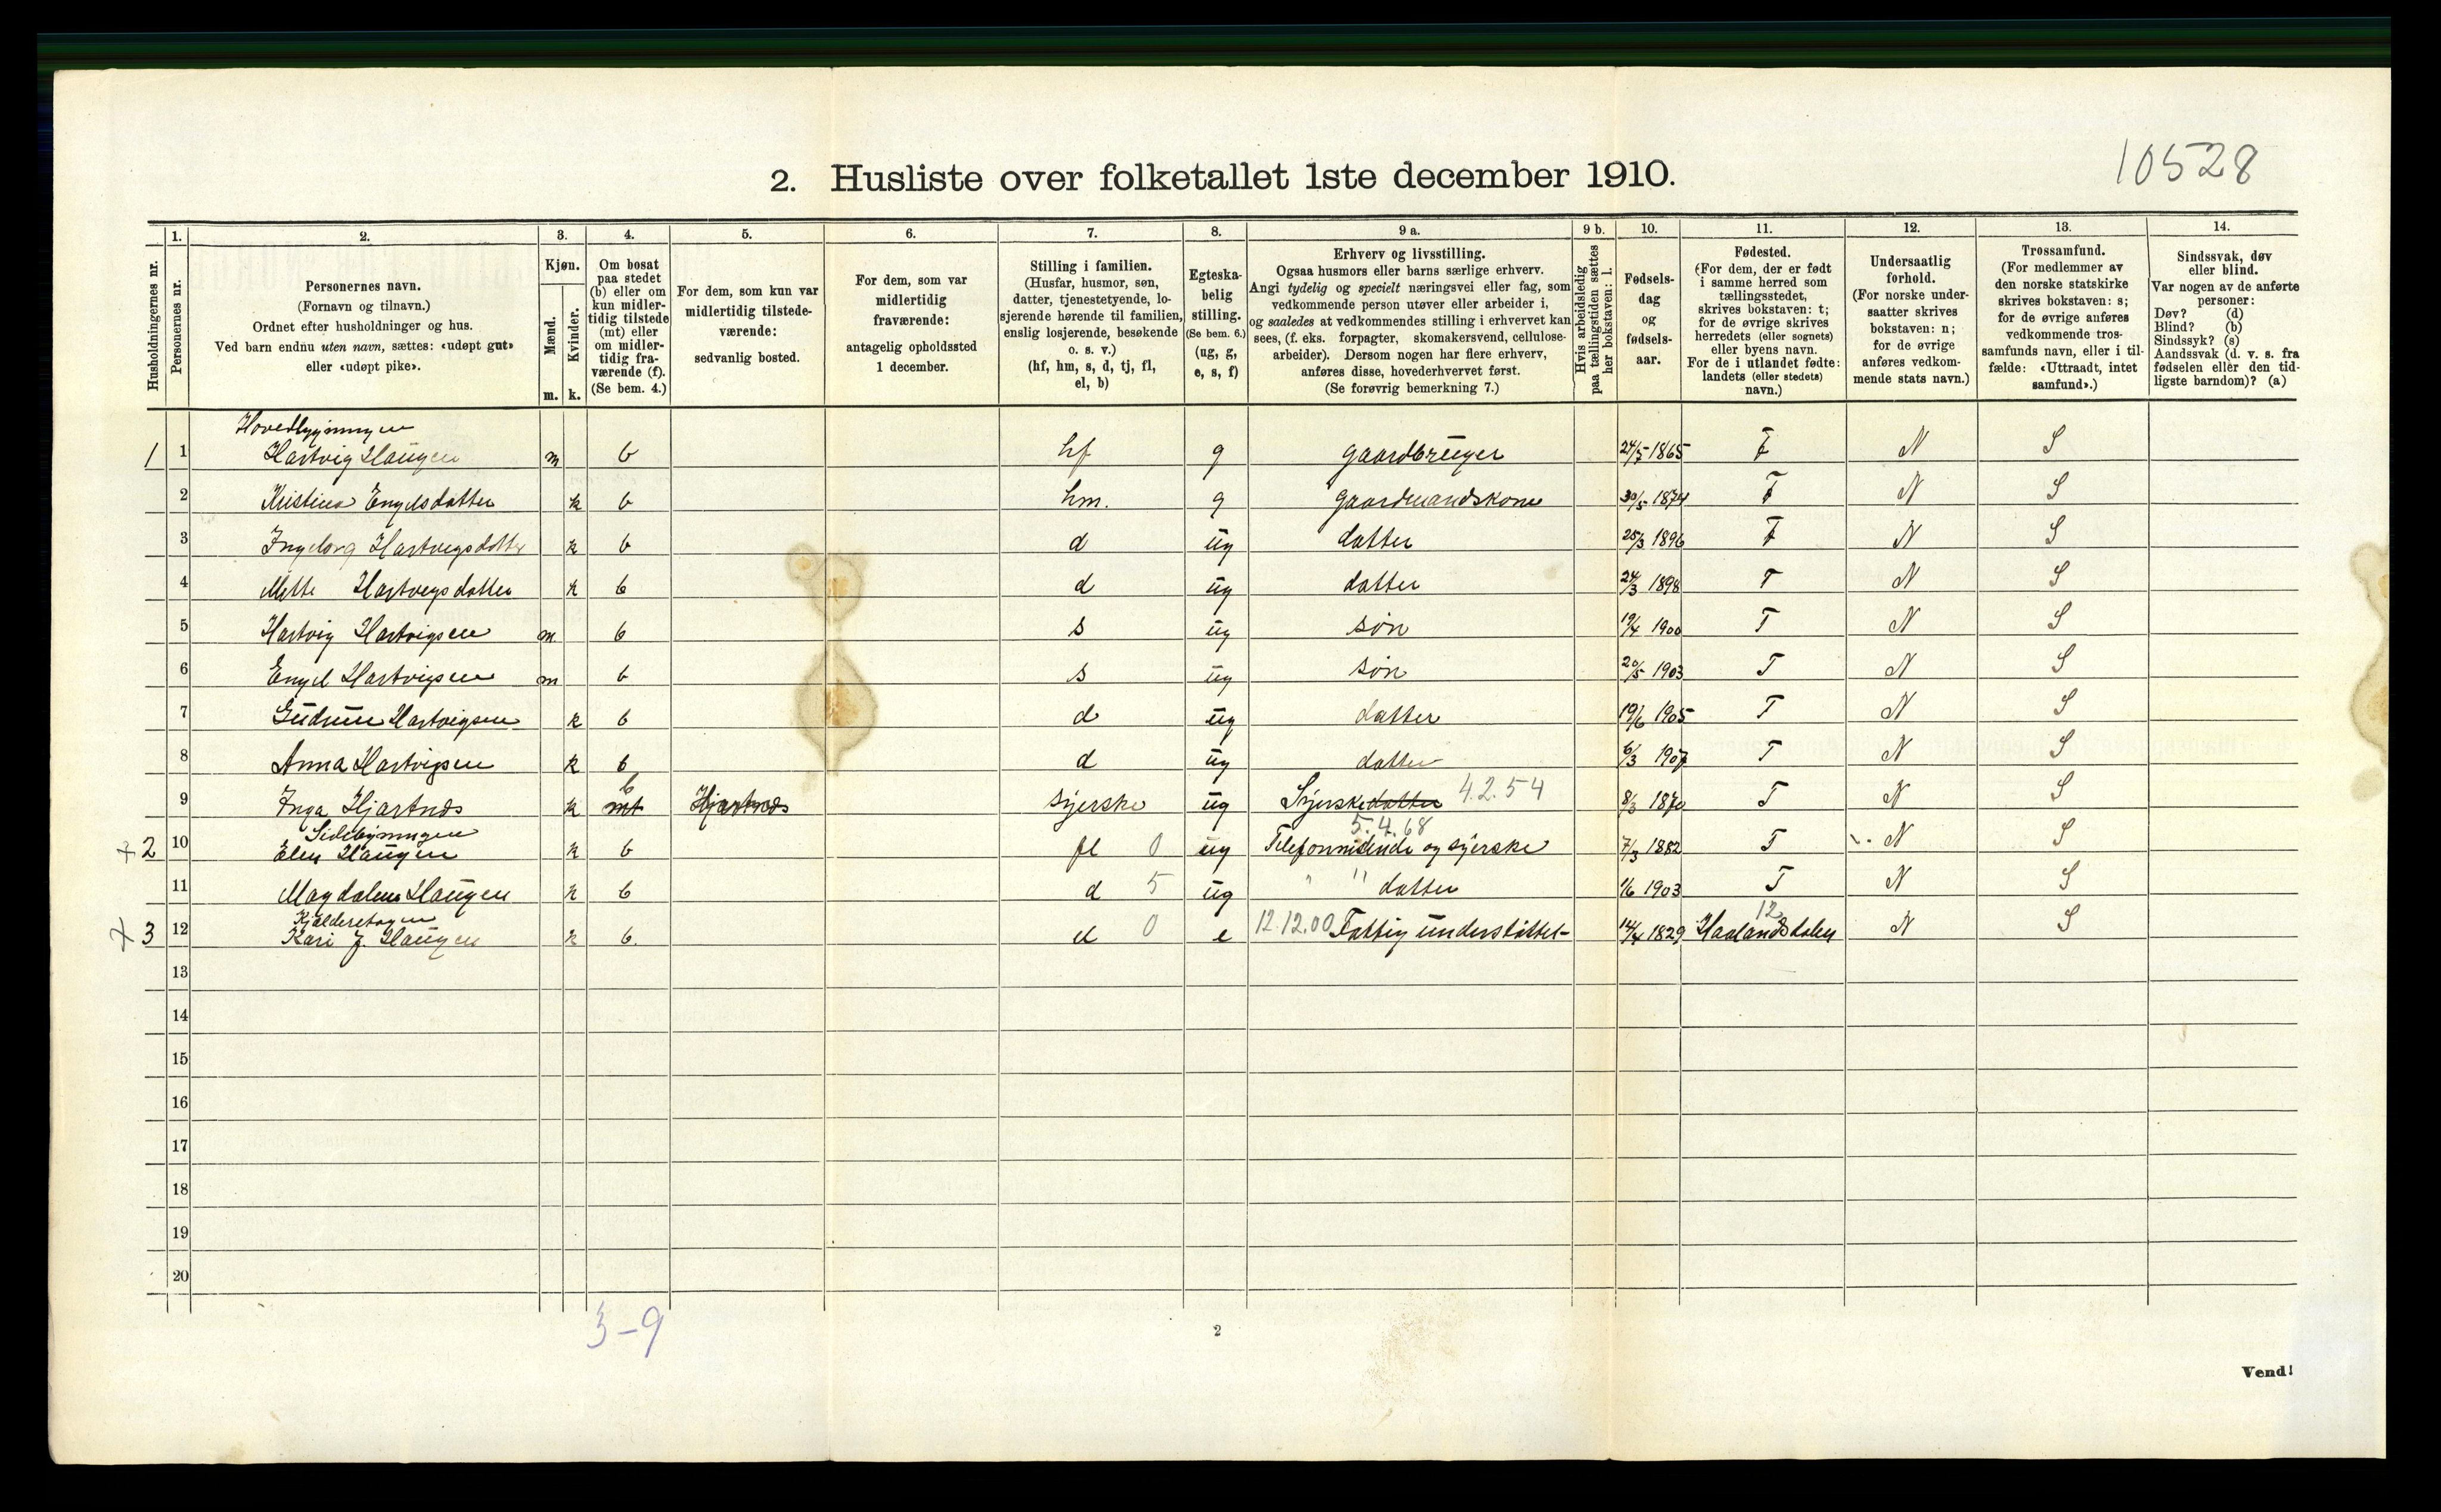 10528
2. Husliste over folketallet 1ste december 1910.
Husholdningernes nr.
1. Personernes nr.
2. Personernes navn.
(Fornavn og tilnavn.)
Ordnet efter husholdninger og hus.
Ved barn endnu uten navn, sættes: «udøpt gut»
eller «udøpt pike».
3. Kjøn.
Mænd. Kvinder.
m. k.
4. Om bosat
paa stedet
(b) eller om
kun midler-
tidig tilstede
(mt) eller
om midler-
tidig fra-
værende (f).
(Se bem. 4.)
5. For dem, som kun var
midlertidig tilstede-
værende:
sedvanlig bosted.
6. For dem, som var
midlertidig
fraværende:
antagelig opholdssted
1 december.
7. Stilling i familien.
(Husfar, husmor, søn,
datter, tjenestetyende, lo-
sjerende hørende til familien,
enslig losjerende, besøkende
o. s. v.)
(hf, hm, s, d, tj, fl,
el, b)
8. Egteska-
belig
stilling.
(Se bem. 6.)
(ug, g,
e, s, f)
9 a. Erhverv og livsstilling.
Ogsaa husmors eller barns særlige erhverv.
Angi tydelig og specielt næringsvei eller fag, som
vedkommende person utøver eller arbeider i,
og saaledes at vedkommendes stilling i erhvervet kan
sees, (f. eks. forpagter, skomakersvend, cellulose-
arbeider). Dersom nogen har flere erhverv,
anføres disse, hovederhvervet først.
(Se forøvrig bemerkning 7.)
9 b. Hvis arbeidsledig
paa tællingstiden sættes
her bokstaven: l.
10. Fødsels-
dag
og
fødsels-
aar.
11. Fødested.
(For dem, der er født
i samme herred som
tællingsstedet,
skrives bokstaven: t;
for de øvrige skrives
herredets (eller sognets)
eller byens navn.
For de i utlandet fødte:
landets (eller stedets)
navn.)
12. Undersaatlig
forhold.
(For norske under-
saatter skrives
bokstaven: n;
for de øvrige
anføres vedkom-
mende stats navn.)
13. Trossamfund.
(For medlemmer av
den norske statskirke
skrives bokstaven: s;
for de øvrige anføres
vedkommende tros-
samfunds navn, eller i til-
fælde: «Uttraadt, intet
samfund».)
14. Sindssvak, døv
eller blind.
Var nogen av de anførte
personer:
Døv? (d)
Blind? (b)
Sindssyk? (s)
Aandssvak (d. v. s. fra
fødselen eller den tid-
ligste barndom)? (a)
Hovedbygningen
1 1 Hartvig Haugen m b hf g gaardbruger 24/5 1865 T N S
2 Kristina Engelsdatter k b hm. g gaardmandskone 30/5 1874 T N S
3 Ingeborg Hartvigsdatter k b d ug datter 25/3 1896 T N S
4 Mette Hartvigsdatter k b d ug datter 24/3 1898 T N S
5 Hartvig Hartvigsen m b s ug søn 19/4 1900 T N S
6 Engel Hartvigsen m b s ug søn 20/5 1903 T N S
7 Gudrun Hartvigsen k b d ug datter 19/6 1905 T N S
8 Anna Hartvigsen k b d ug datter 6/3 1907 T N S
9 Inga Hjartnes k mt b Hjartnes syerske ug Syerske datter 4.2.54 8/3 1870 T N S
Sidebygningen 5.4.68
+ 2 10 Elen Haugen k b fl 0 ug Telefonnistinde og syerske 7/3 1882 T N S
11 Magdalena Haugen k b d 5 ug " " datter 1/6 1903 T N S
Kjælderetagen 12
+ 3 12 Kari J. Haugen k b. el 0 e 12.12.00 Fattig understøttet- 14/4 1829 Haalandsdalen N S
13
14
15
16
17
18
19
20
3-9
2
Vend!